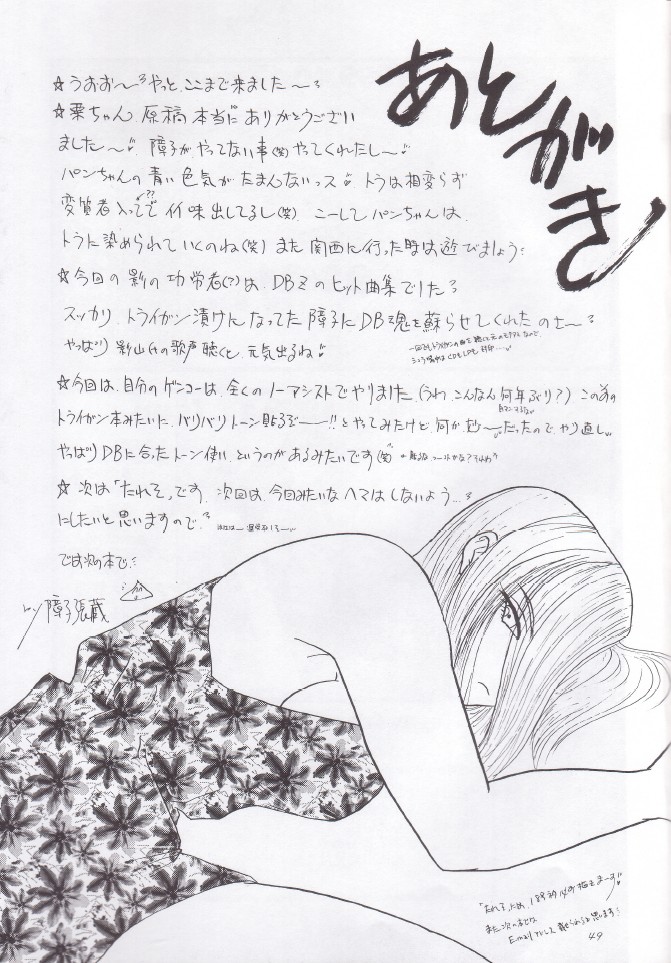 あとがき
☆うおお〜やっと、ここまで来ました〜
☆栗ちゃん、原稿本当にありがとうござい
ました〜 障子がやってない事(笑)やってくれたし〜
パンちゃんの青い色気がたまんないっス トラは相変らず
変質者入ってて イイ味出してるし(笑) こーしてパンちゃんは、
トラに染められていくのね(笑) また関西に行った時は遊びましょう
☆今回の影の功労者(?)は、DBZのヒット曲集でした
スッカリ、トライガン漬けになってた障子にDB魂を蘇らせてくれたのさ〜
やっぱり影山さんの歌声聴くと、元気出るね
☆今回は、自分のゲンコーは、全くのノーアシストでやりました。(うわ、こんなん何年ぶり?) この前の
トライガン本みたいに、バリバリトーン貼るぞ——!!とやってみたけど、何か妙〜だったので、やり直し。
やっぱりDBに合ったトーン使い、というのがあるみたいです(笑)
☆次は「たれそ」です。次回は、今回みたいなヘマはしないよう…
にしたいと思いますので
では次の本で
障子張蔵
また次の本では
Emailアドレス載せられると思います
49